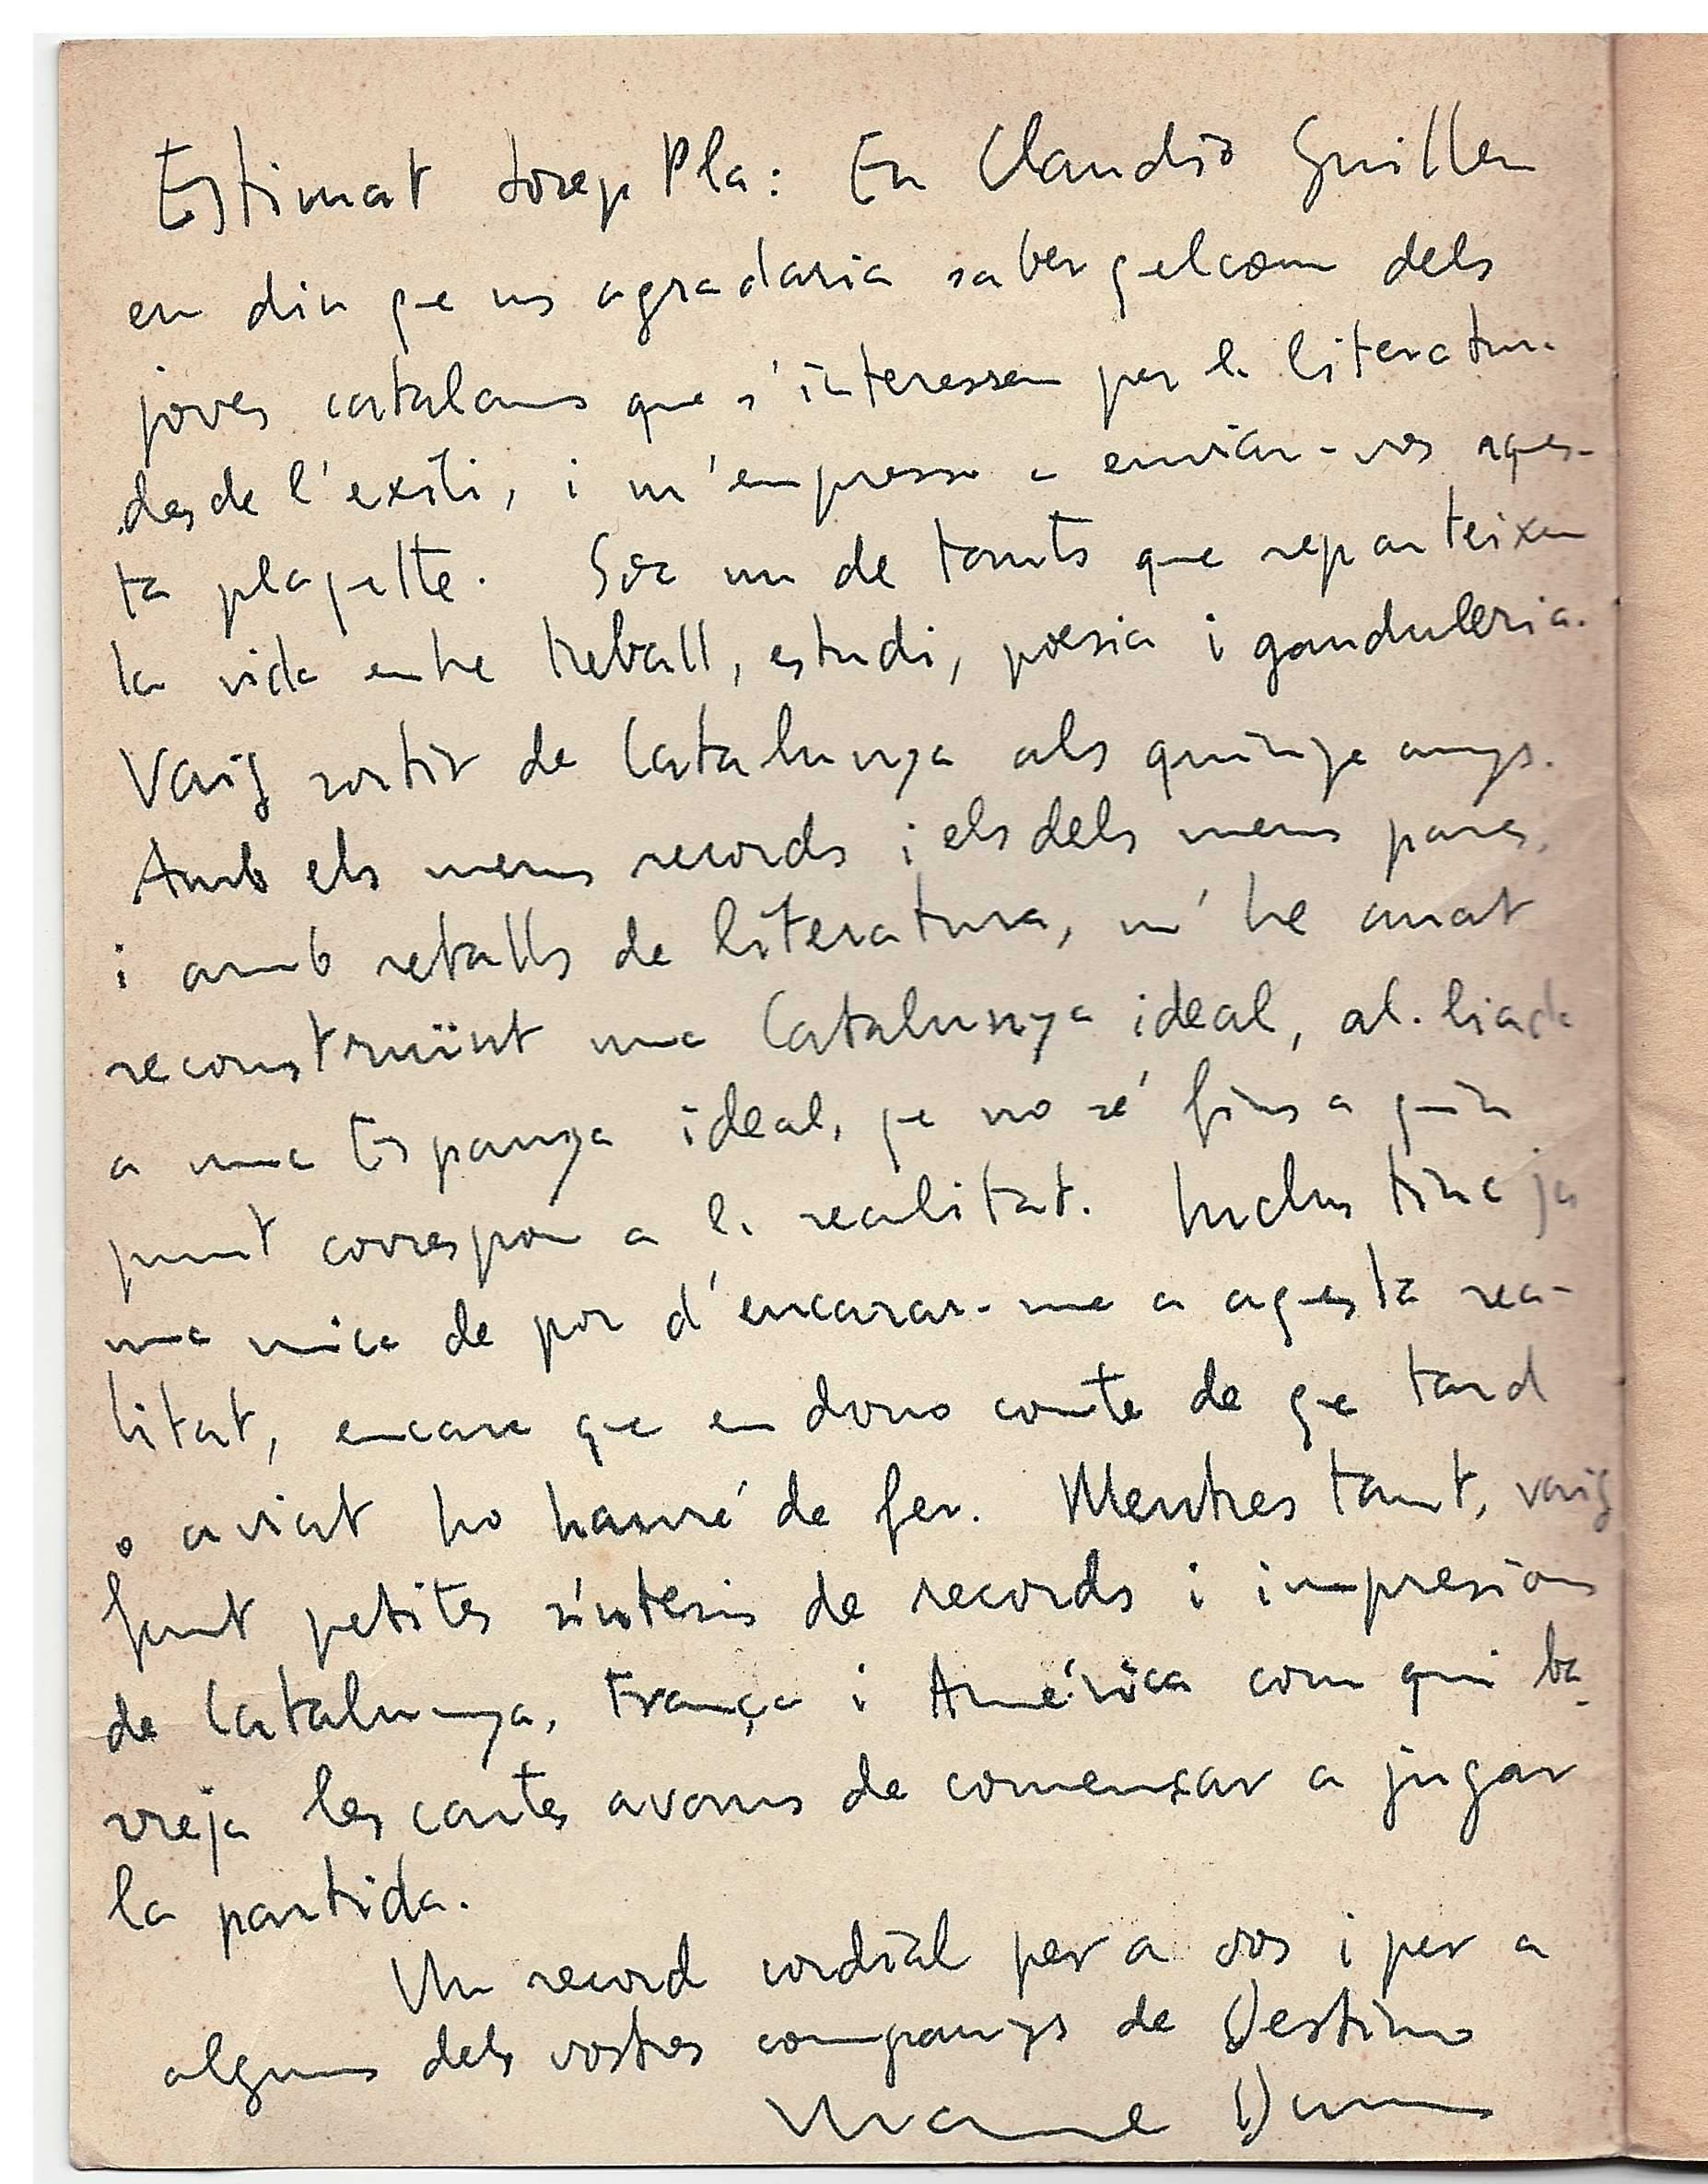 Estimat Josep Pla: En Claudio Guillen
em diu que us agradaria saber quelcom dels
joves catalans que s'interessen per la literatura
desde l'exili, i m'empresso a enviar-vos aques-
ta plaquette. Soc un de tants que reparteixen
la vida entre treball, estudi, poesia i ganduleria.
Vaig sortir de Catalunya als quinze anys.
Amb els meus records i els dels meus pares,
i amb retalls de literatura, m'he anat
reconstruïnt una Catalunya ideal, al·liada
a una Espanya ideal, que no sé fins a quin
punt correspon a la realitat. Inclus tinc ja
una mica de por d'encarar-me a aquesta rea-
litat, encara que em dono comte de que tard
o aviat ho hauré de fer. Mentres tant, vaig
fent petites síntesis de records i impresions
de Catalunya, França i Amèrica com qui ba-
rreja les cartes avans de comensar a jugar
la partida.
Un record cordial per a vos i per a
alguns dels vostres companys de Destino
Manuel Duran